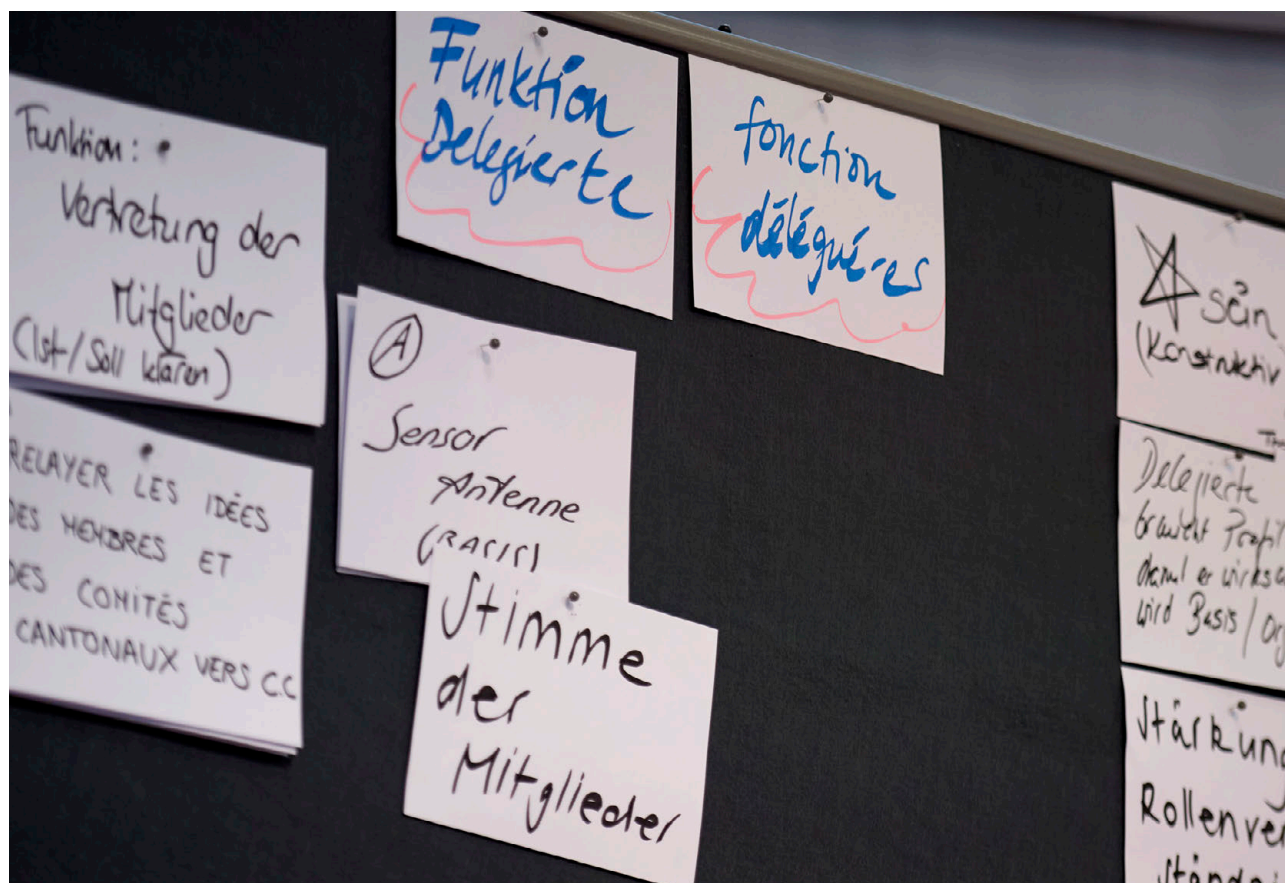 Funktion:
Vertretung der
Mitglieder
(Ist/Soll klären)
RELAYER LES IDÉES
DES MEMBRES ET
DES COMITÉS
CANTONAUX VERS C.C
Funktion
Delegierte
fonction
délégué-es
A
Sensor
Antenne
(BASIS)
Stimme
der
Mitglieder
sein
(Konstruktiv
Delegierte
braucht Profil
damit er
wird Basis /
Stärkung
Rollenver
ständni